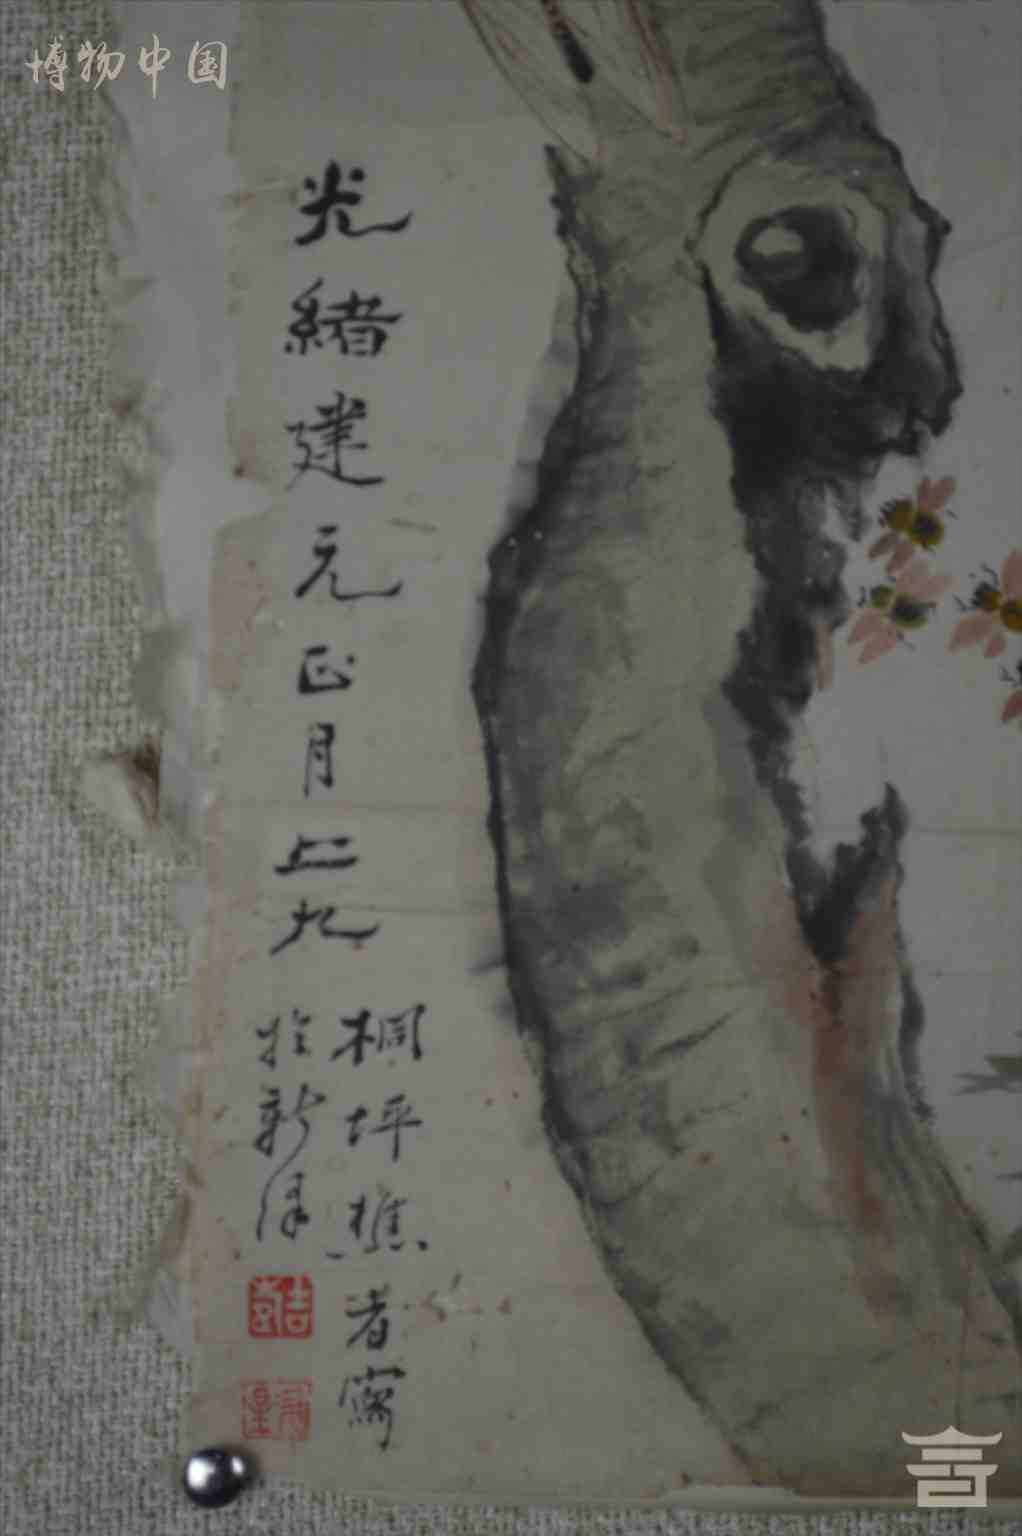 博物中国
光緒建元正月上九
桐坪樵者寫
於新津